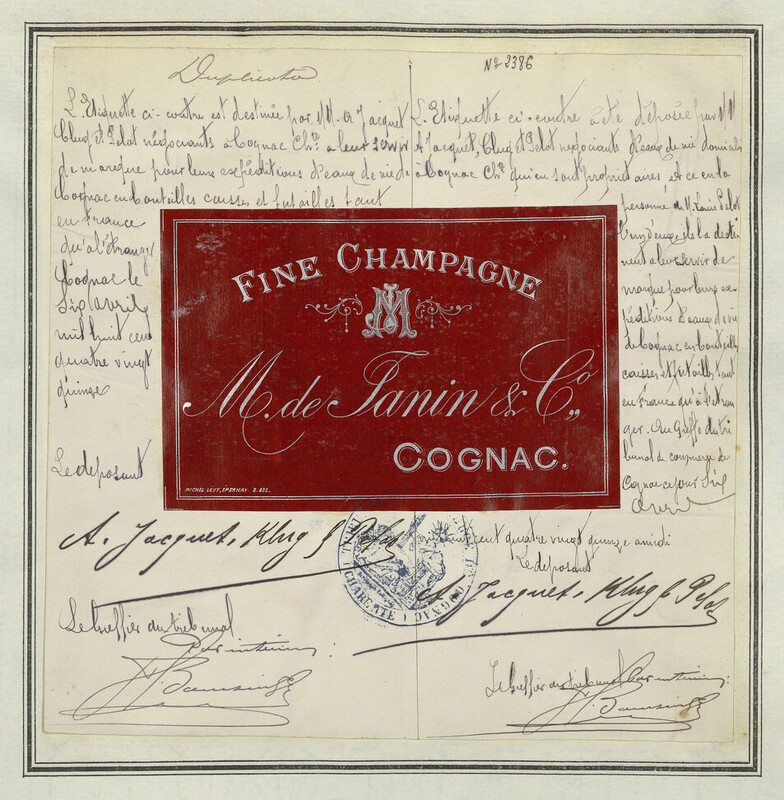 Duplicata
L'Etiquette ci-contre est destinée par MM. A Jacquet
Klug et Pelot négociants à Cognac Chte à leur servir
de marque pour leurs expéditions d'eaux de vie de
Cognac en bouteilles caisses et futailles tant
en France
qu'à l'étranger
Cognac le
Six avril
mil huit cent
quatre vingt
quinze
Le déposant
A. Jacquet, Klug & Pelot
Le Greffier du tribunal
Par intérim
No 2386
L'Etiquette ci-contre a été déposée par MM
A Jacquet, Klug et Pelot négociants d'eaux de vie domiciliés
à Cognac Chte qui en sont propriétaires et ce en la
personne de M. Louis Pelot
l'un d'eux ils la desti
nent à leur servir de
marque pour leurs ex-
péditions d'eaux de vie
de Cognac en bouteilles
caisses et futailles tant
en France qu'à l'étran
ger. Au Greffe du tri
bunal de commerce de
Cognac ce jour Six
avril
huit cent quatre vingt quinze à midi
Le déposant
A. Jacquet, Klug & Pelot
Le Greffier du tribunal Par intérim
FINE CHAMPAGNE
M
M. de Tanin & Co.,
COGNAC.
MICHEL LÉVY, ÉPERNAY.
CHARENTE
COGNAC